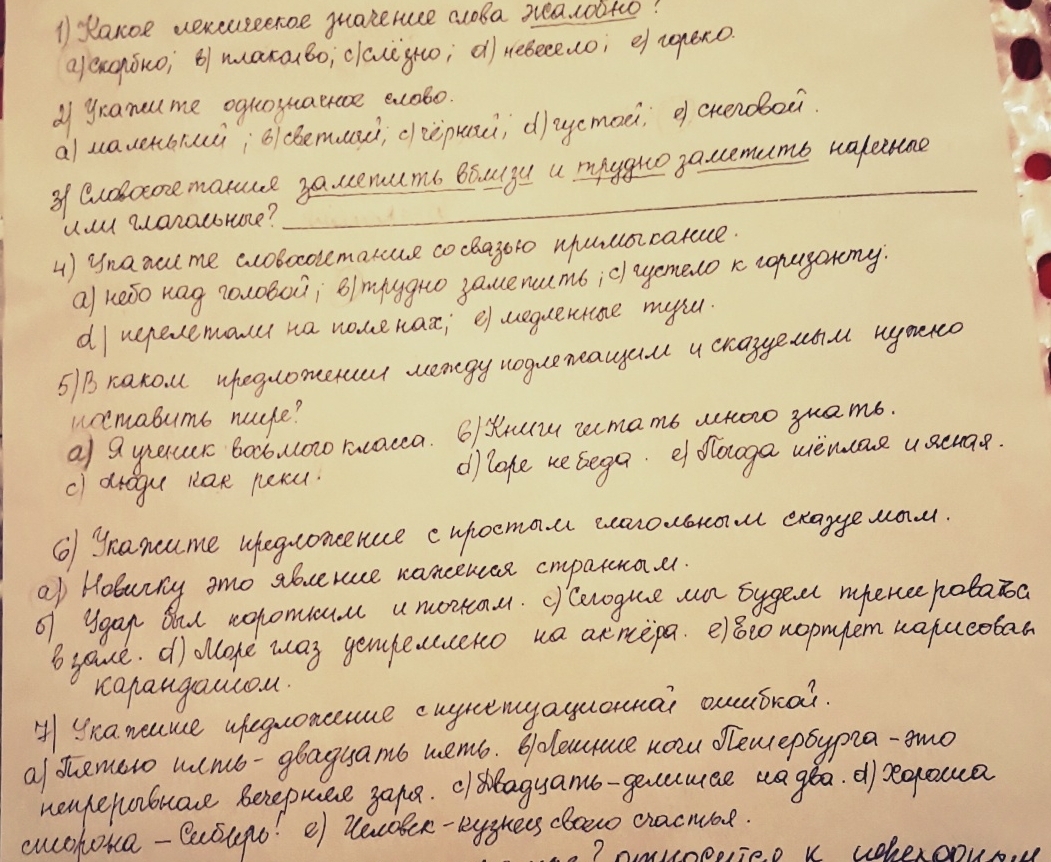 1) Какое лексическое значение слова жалобно?
а) скорбно; в) плаксиво; с) слёзно; d) невесело; е) горько.
2) Укажите однозначное слово.
а) маленький; в) светлый; с) чёрный; d) густой; е) снеговой.
3) Словосочетания заметить вблизи и трудно заметить наречные
или глагольные?
4) Укажите словосочетания со связью примыкание.
а) небо над головой; в) трудно заметить; с) густело к горизонту.
d) перелетали на полянах; е) медленные тучи.
5) В каком предложении между подлежащим и сказуемым нужно
поставить тире?
а) Я ученик восьмого класса. в) Книги читать много знать.
с) Люди как реки. d) Горе не беда. е) Погода тёплая и ясная.
6) Укажите предложение с простым глагольным сказуемым.
а) Новичку это явление кажется странным.
б) Удар был коротким и точным. с) Сегодня мы будем тренироваться
в зале. d) Море глаз устремлено на актёра. е) Его портрет нарисован
карандашом.
7) Укажите предложение с пунктуационной ошибкой.
а) Пятью пять - двадцать пять. в) Летние ночи Петербурга - это
непрерывная вечерняя заря. с) Двадцать - делится на два. d) Хороша
сторона - Сибирь! е) Человек - кузнец своего счастья.
? относится к переходным